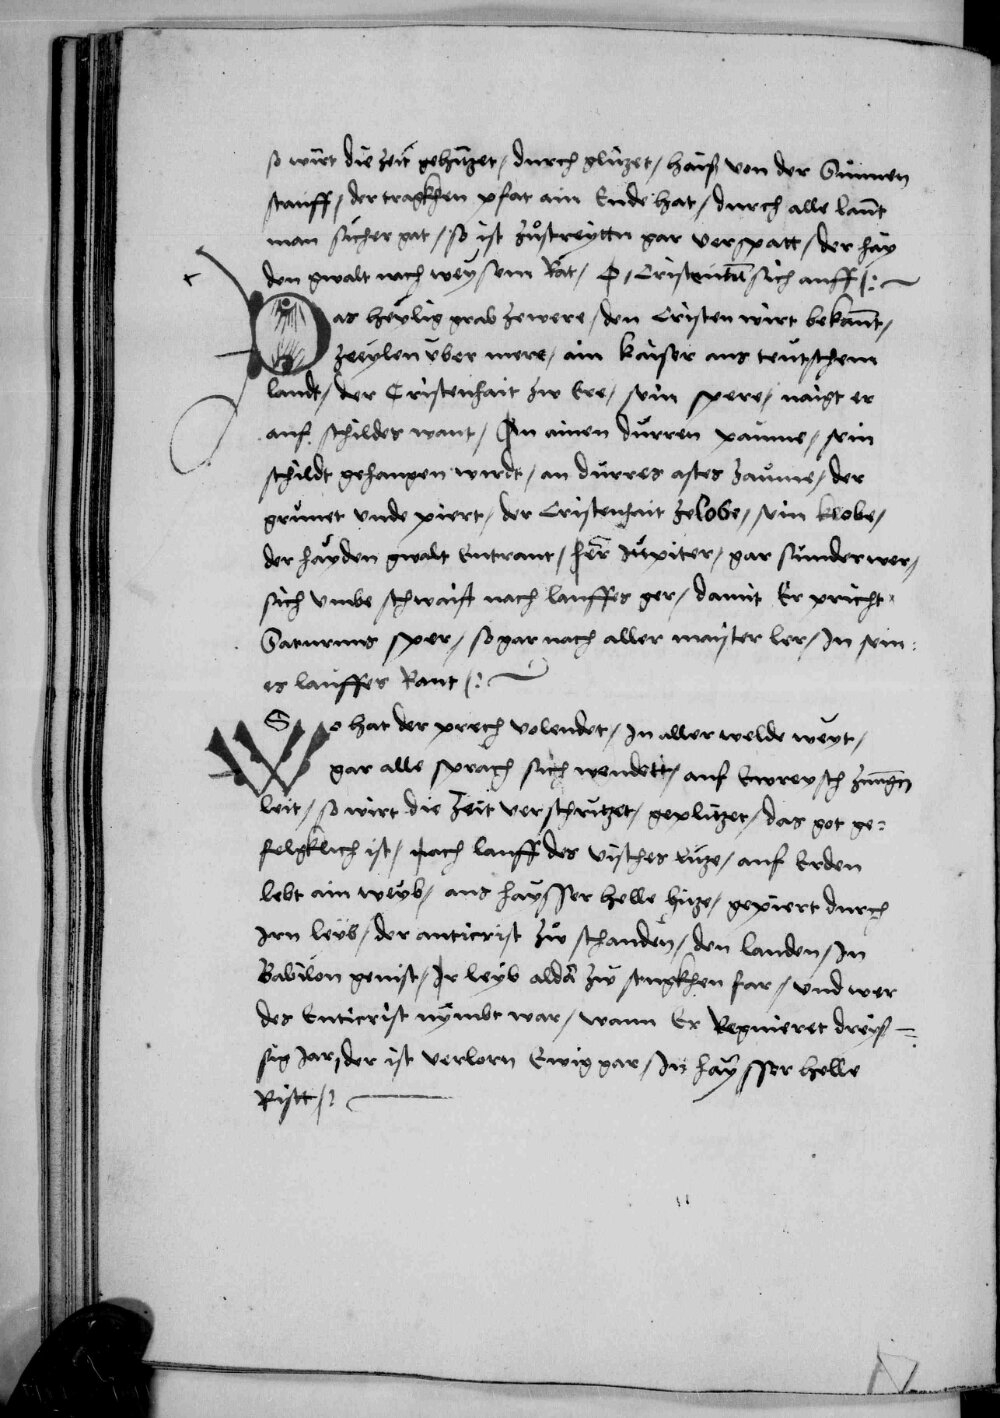 so wirt die zeit gehitzet / durch glitzet / haiß von der Sunnen
stauff / der tragkhen pfat ain Ende hat / durch alle lannt
man sicher gat / so ist zůstreyttn gar verspatt / der hay
den gwalt nach weysem Rat / O Cristentn̄ sich auff /:
Das heylig grab zewere / den Cristen wirt bekannt /
zeeylen vber mere / ain kaiser aus teutschem
landt / der Cristenhait zw Ere / sein spere / naigt er
auf schildes want / An ainen dürren paume / sein
schildt gehangen wirdt / an dürres astes zaume / der
grunet vnde piert / der Cristenhait zelobe / sein klobe /
der hayden gwalt Entrant / herr Jupiter / gar sunder wer /
sich vmbe schwaift nach lauffes ger / damit Er pricht
Saturnus sper / so gar nach aller maister ler / In sein :
es lauffes Rant /:
So hat der prech volendet / In aller welde weyt /
gar alle sprach sich wendett / auf Ewreysch zungn
leit / so wirt die zeit verschrutzet / geplitzet / das got ge=
felgklich ist / nach lauff des visches ruze / auf Erden
lebt ain weyb / aus haysser helle hitze / gepiert durch
Irn leyb / der anticrist zw schanden / den landen / In
Babilon genist / Ir leyb alda zw stugkhen far / vnd wer
des Enticrist nymbt war / wann Er Regnieret dreys=
sig Jar / der ist verlorn Ewig gar / In haysser helle
Ristt /: